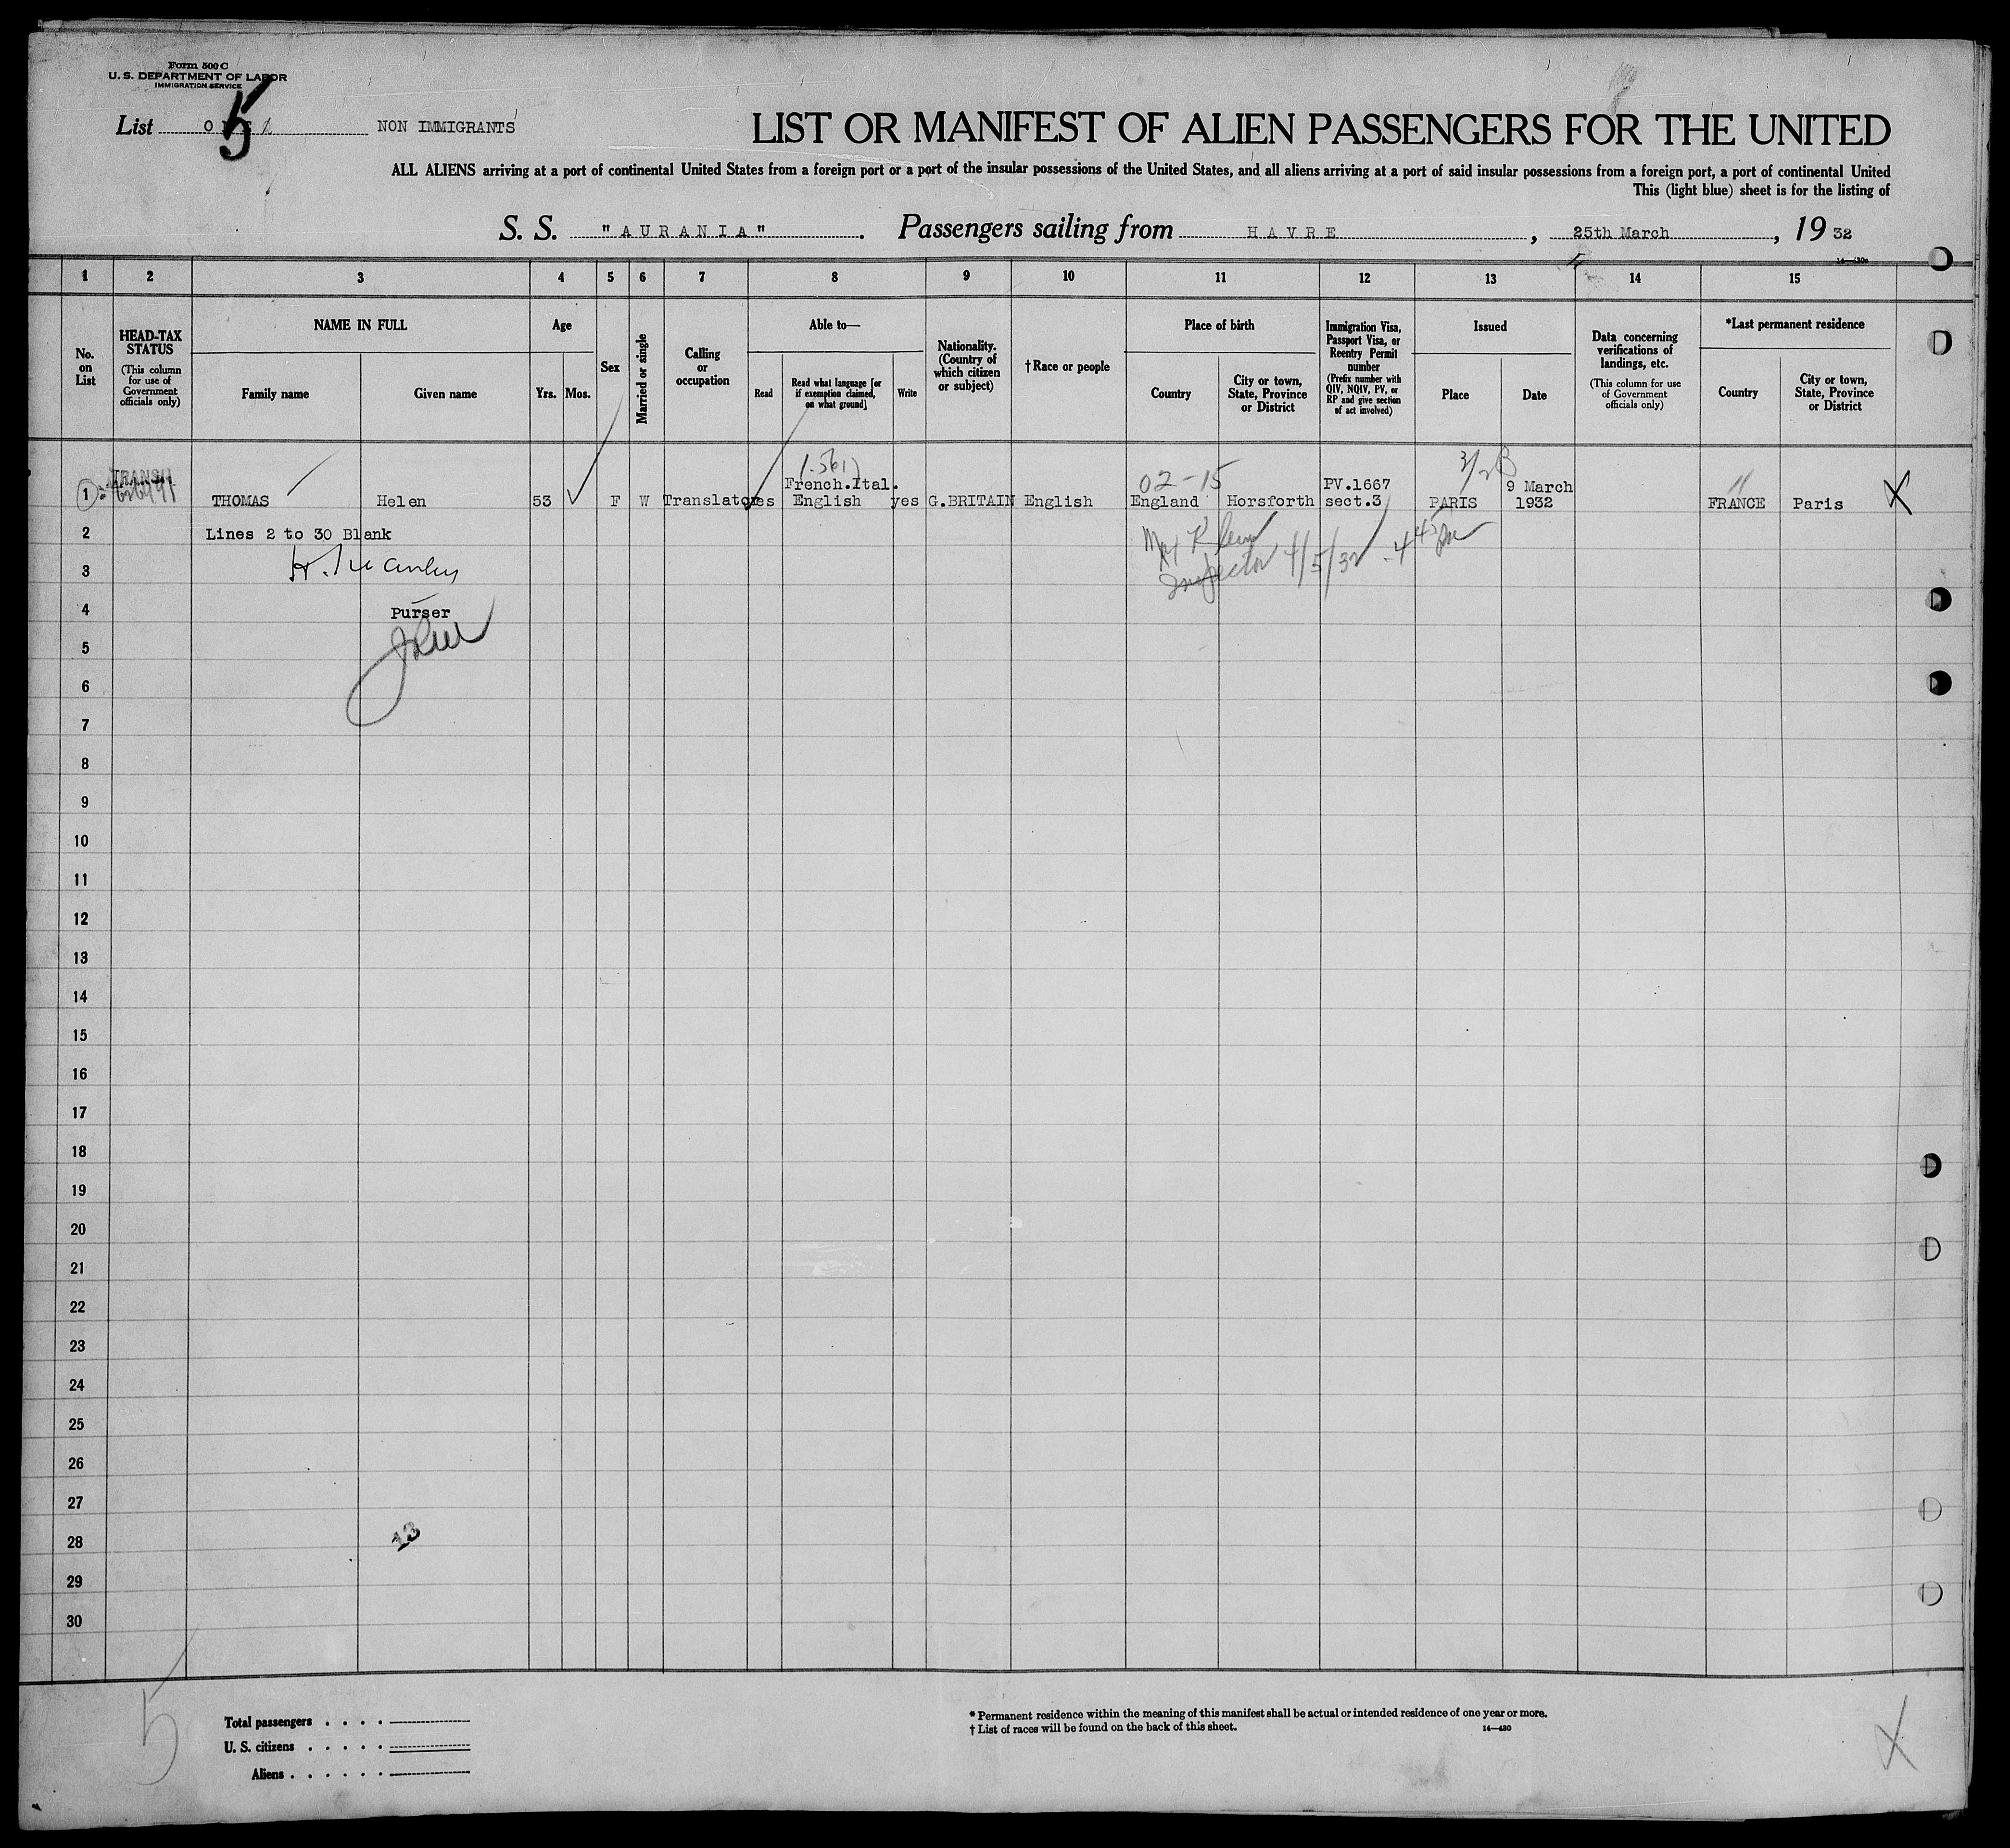 Form 500 C
U. S. DEPARTMENT OF LABOR
IMMIGRATION SERVICE
List 5 NON IMMIGRANTS
LIST OR MANIFEST OF ALIEN PASSENGERS FOR THE UNITED
ALL ALIENS arriving at a port of continental United States from a foreign port or a port of the insular possessions of the United States, and all aliens arriving at a port of said insular possessions from a foreign port, a port of continental United
This (light blue) sheet is for the listing of
S. S. "AURANIA". Passengers sailing from HAVRE, 25th March, 1932
1 2 3 4 5 6 7 8 9 10 11 12 13 14 15
No. on List
HEAD-TAX STATUS (This column for use of Government officials only)
NAME IN FULL
Family name
Given name
Age
Yrs. Mos.
Sex
Married or single
Calling or occupation
Able to—
Read
Read what language [or if exemption claimed, on what ground]
Write
Nationality. (Country of which citizen or subject)
†Race or people
Place of birth
Country
City or town, State, Province or District
Immigration Visa, Passport Visa, or Reentry Permit number (Prefix number with QIV, NQIV, PV, or RP and give section of act involved)
Issued
Place
Date
Data concerning verifications of landings, etc. (This column for use of Government officials only)
*Last permanent residence
Country
City or town, State, Province or District
TRANSIT
02-15
1 THOMAS Helen 53 F W Translator yes French.Ital. English yes G.BRITAIN English England Horsforth PV.1667 sect.3 PARIS 9 March 1932 FRANCE Paris X
2 Lines 2 to 30 Blank
Inspector 4/5/32 - 4 45 pm
3
4 Purser
5
6
7
8
9
10
11
12
13
14
15
16
17
18
19
20
21
22
23
24
25
26
27
28
29
30
5
Total passengers
U. S. citizens
Aliens
* Permanent residence within the meaning of this manifest shall be actual or intended residence of one year or more.
† List of races will be found on the back of this sheet. 14—430
X